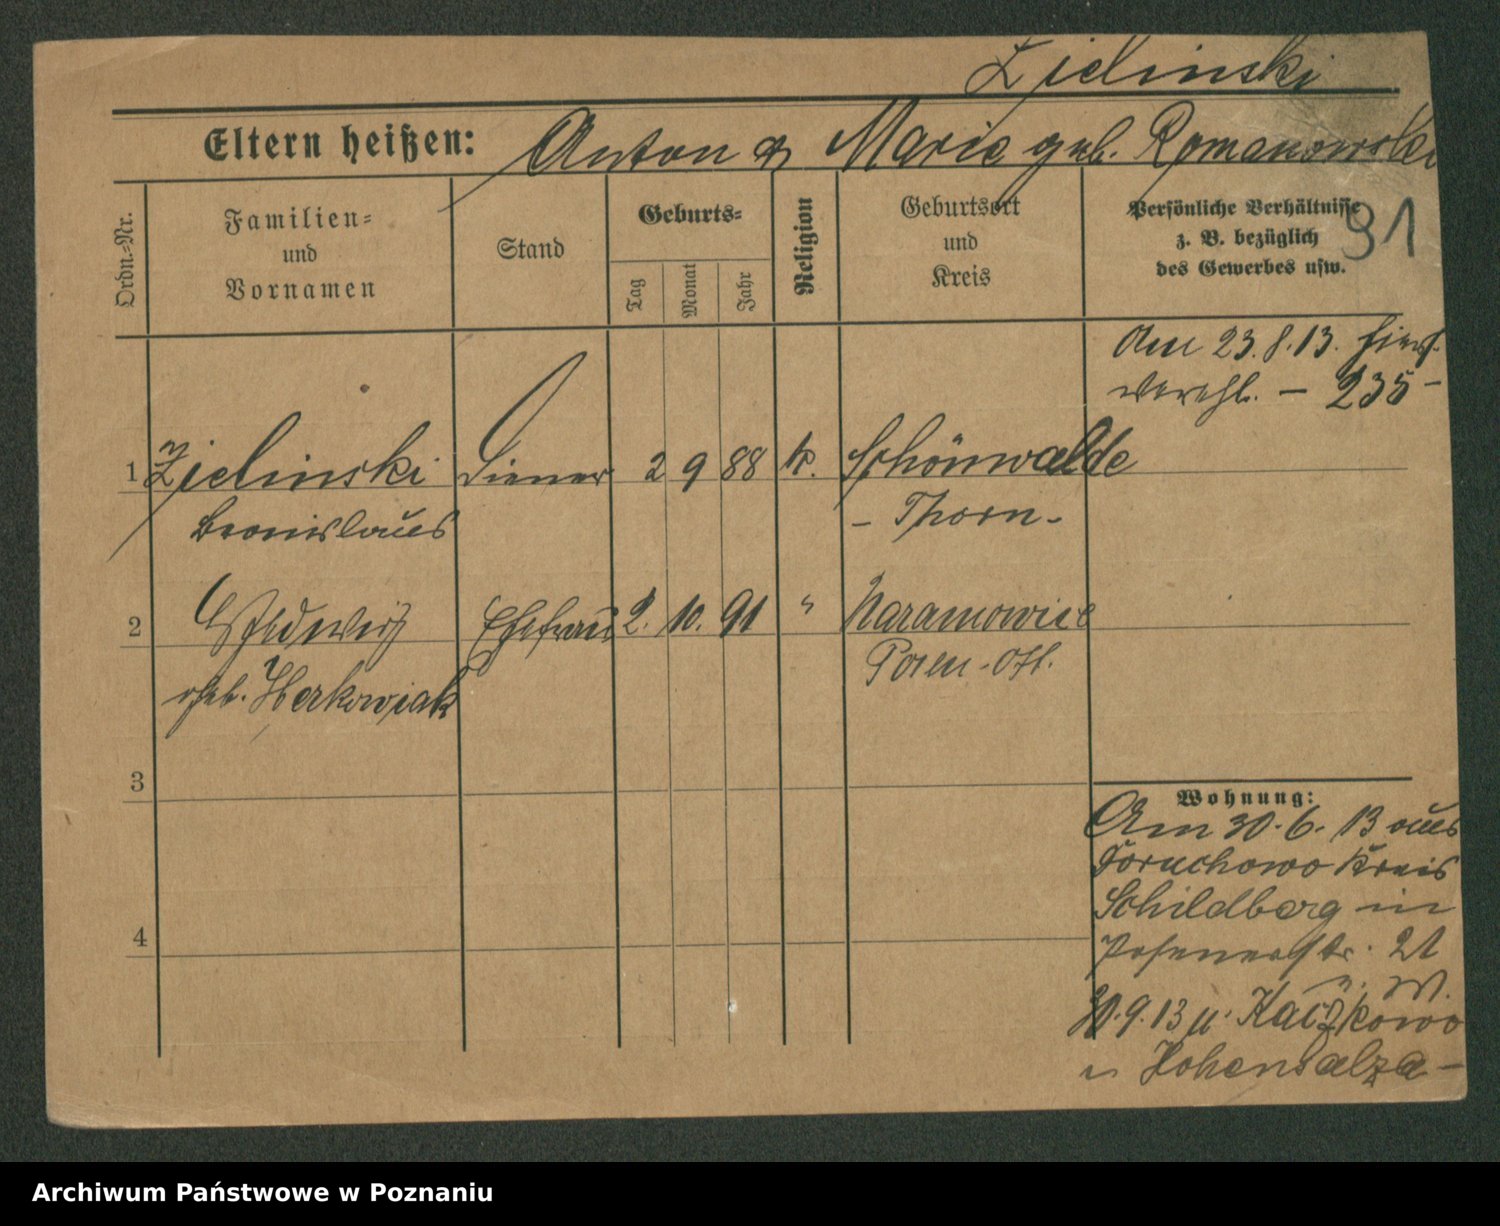 Zielinski
Eltern heißen: Anton & Marie geb. Romanowski
91
Ordn.-Nr.
Familien-
und
Vornamen
Stand
Geburts-
Tag
Monat
Jahr
Religion
Geburtsort
und
Kreis
Persönliche Verhältnisse
z. B. bezüglich
des Gewerbes usw.
Am 23.8.13. hier
verehl. – 235 –
1 Zielinski Diener 2 9 88 k. Schönwalde
Bronislaus – Thorn –
2 Hedwig Ehefrau 2. 10. 91 " Naramowice
geb. Herkowiak Posen-Ost.
3
4
Wohnung:
Am 30.6.13 aus
Kreis
Schildberg in
Posenerstr. 21
30.9.13 n. Kaczkowo
Hohensalza –
Archiwum Państwowe w Poznaniu